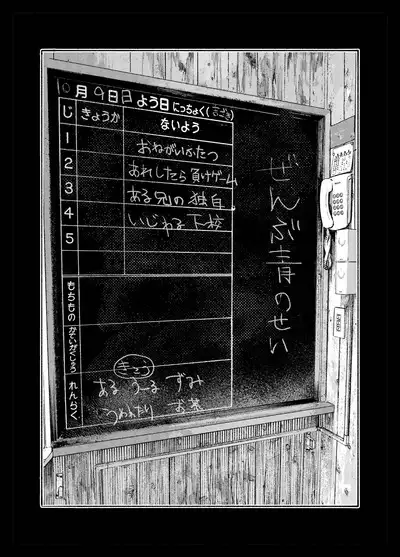 月9日日よう日にっちょく(
じ きょうか ないよう
1 おねがいふたつ
2 あれしたら負けゲーム
3 ある兄の独白
4 いじわる下校
5
もちもの
かていがくしゅう
れんらく
きょう
ある ずみ
お茶
ぜんぶ青のせい